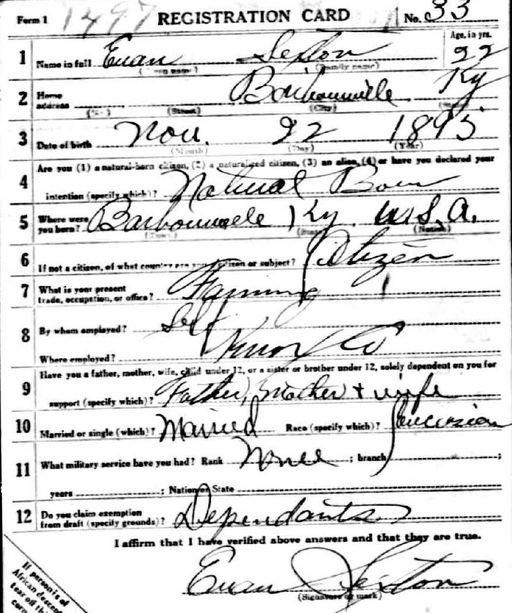 Form 1 1497 REGISTRATION CARD No. 33
1 Name in full Evan Sexton Age, in yrs. 22
(Given name) (Family name)
2 Home address Barbourville Ky
(No.) (Street) (City) (State)
3 Date of birth Nov. 22 1895
(Month) (Day) (Year)
4 Are you (1) a natural-born citizen, (2) a naturalized citizen, (3) an alien, (4) or have you declared your
intention (specify which)? Natural Born
5 Where were you born? Barbourville Ky U.S.A.
(Town) (State) (Nation)
6 If not a citizen, of what country are you a citizen or subject? Citizen
7 What is your present trade, occupation, or office? Farming
8 By whom employed? Self
Where employed? Knox Co
9 Have you a father, mother, wife, child under 12, or a sister or brother under 12, solely dependent on you for
support (specify which)? Father, Mother + wife
10 Married or single (which)? Married Race (specify which)?
11 What military service have you had? Rank None ; branch ;
years ; Nation or State
12 Do you claim exemption from draft (specify grounds)? Dependants
I affirm that I have verified above answers and that they are true.
Evan Sexton
(Signature or mark)
If person is of
African descent,
tear off this